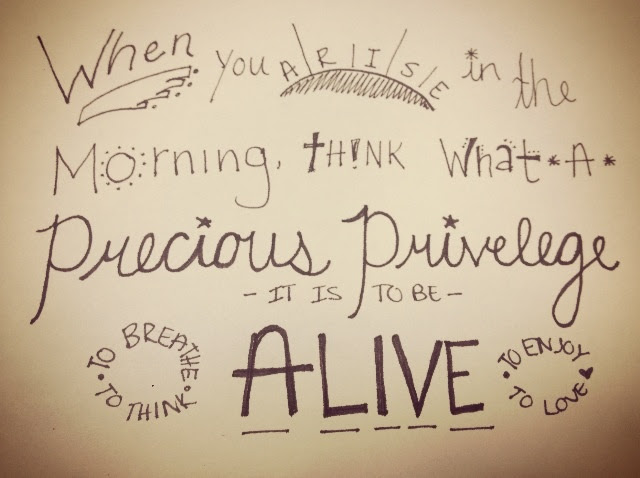 When you ARISE in the
Morning, tHINK What A
Precious Privelege
- IT IS TO BE -
ALIVE
TO BREATHE
TO THINK
TO ENJOY
TO LOVE